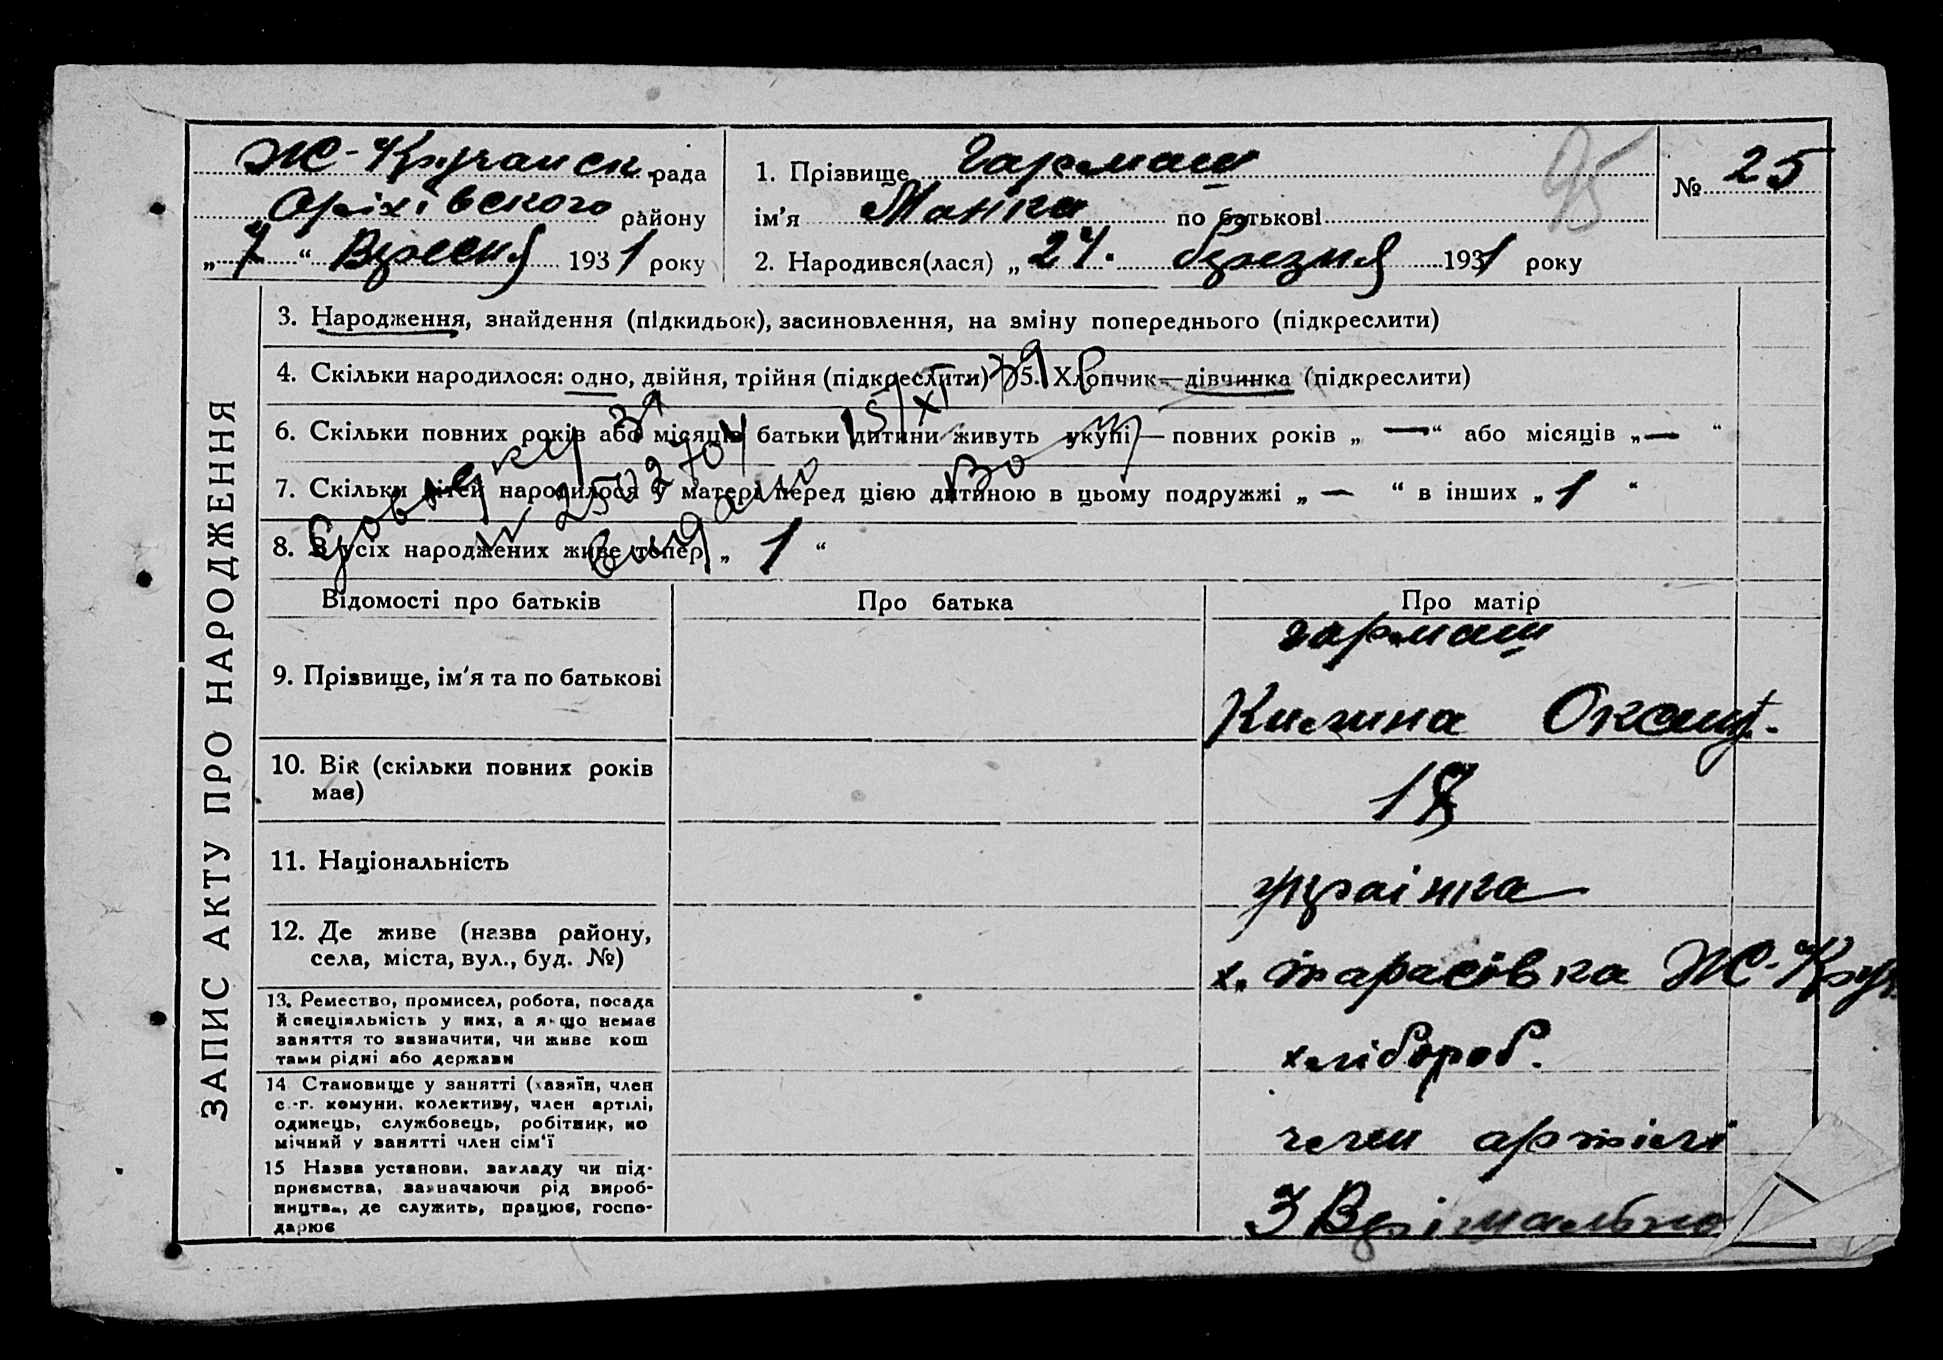 Ж-Кручанск. рада
Оріхівського району
„ 7 “ Вересня 1931 року
1. Прізвище Гармаш
ім'я Манка по батькові
2. Народився(лася) „ 24. березня 1931 року
№ 25
95
ЗАПИС АКТУ ПРО НАРОДЖЕННЯ
3. Народження, знайдення (підкидьок), засиновлення, на зміну попереднього (підкреслити)
4. Скільки народилося: одно, двійня, трійня (підкреслити) 5. Хлопчик—дівчинка (підкреслити)
6. Скільки повних років або місяців батьки дитини живуть укупі — повних років „ — “ або місяців „ — “
7. Скільки дітей народилося у матері перед цією дитиною в цьому подружжі „ — “ в інших „ 1 “
8. З усіх народжених живе тепер „ 1 “
Відомості про батьків Про батька Про матір
9. Прізвище, ім'я та по батькові
Гармаш
Килина
10. Вік (скільки повних років має)
11. Національність
українка
12. Де живе (назва району,
села, міста, вул., буд. №)
х. Тарасівка Ж-Круч
13. Ремество, промисел, робота, посада
й спеціяльність у них, а якщо немає
заняття то зазначити, чи живе кош
тами рідні або держави
хлібороб.
14 Становище у занятті (хазяїн, член
с.-г. комуни, колективу, член артілі,
одинець, службовець, робітник, по
мічний у занятті член сім'ї
член артілі
15 Назва установи, закладу чи під-
приємства, зазначаючи рід вироб-
ництва, де служить, працює, госпо-
дарює